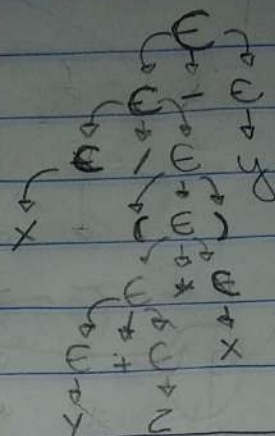 E
E - E
E / E y
X ( E )
E * E
E + E X
X 2